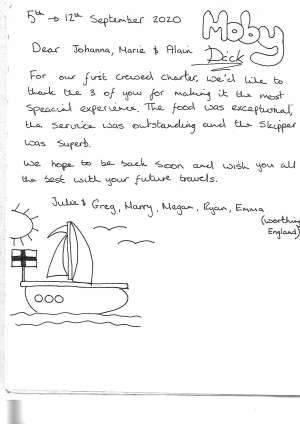 5th → 12th September 2020
Moby
Dick
Dear Johanna, Marie & Alain
For our first crewed charter, we'd like to
thank the 3 of you for making it the most
Speacial experience. The food was exceptional,
the service was outstanding and the Skipper
was superb.
We hope to be back soon and wish you all
the best with your future travels.
Julie & Greg, Harry, Megan, Ryan, Emma
(Worthing
England)